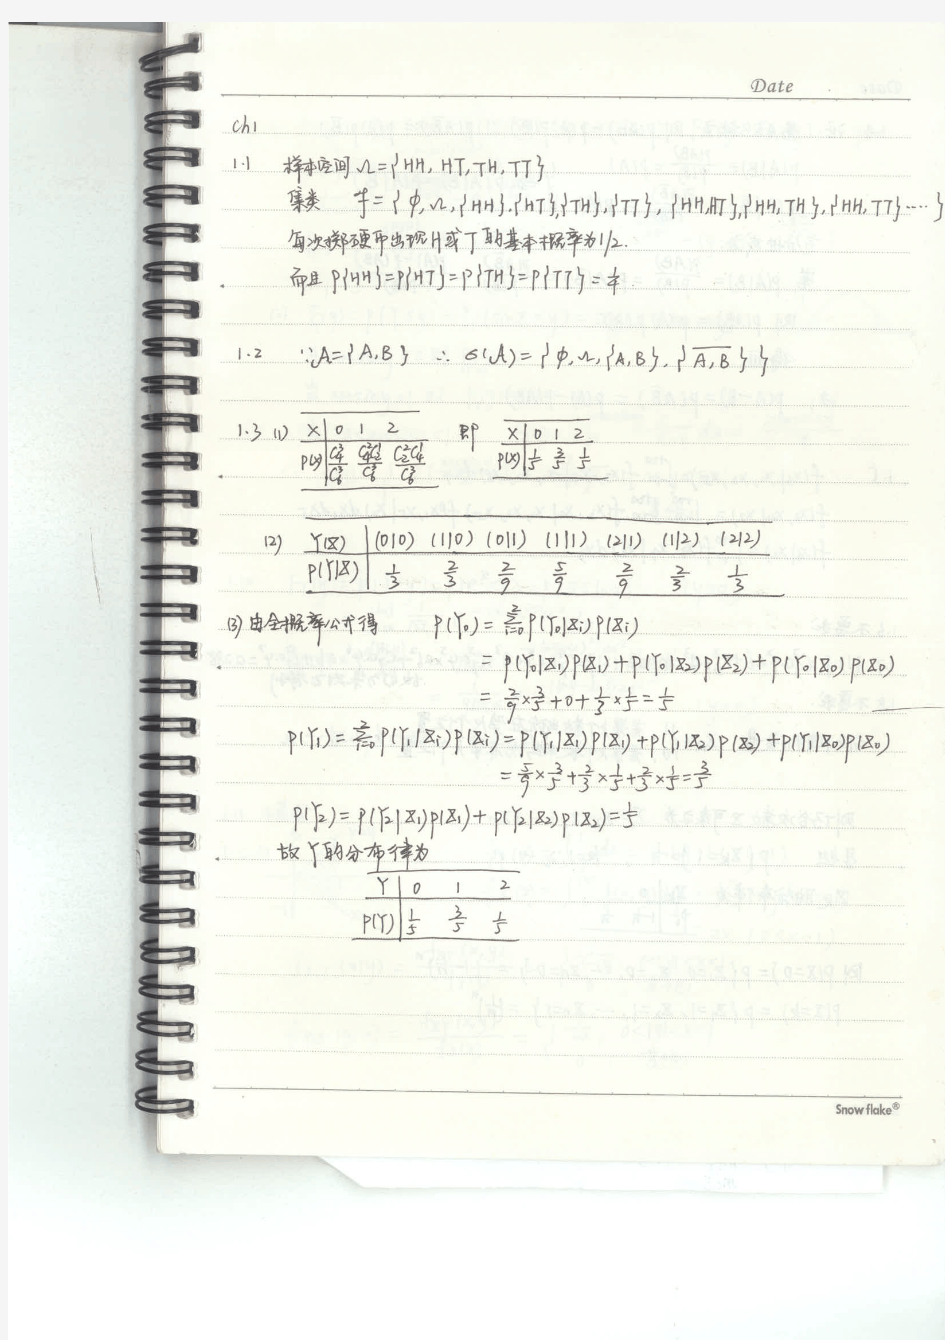 Date
ch1
1.1 样本空间Ω={HH, HT, TH, TT}
集类 ℱ={φ, Ω, {HH}, {HT}, {TH}, {TT}, {HH,HT}, {HH, TH}, {HH, TT}……}
每次掷硬币出现H或T的基本概率为1/2.
而且 P{HH}=P{HT}=P{TH}=P{TT}=1/4.
1.2 ∵A={A,B} ∴ σ(A)={φ, Ω, {A,B}, {\overline{A,B}}}
1.3 (1) X | 0 1 2 即 X | 0 1 2
P(X) | C₄³/C₆³ C₄²C₂¹/C₆³ C₂²C₄¹/C₆³ P(X) | 1/5 3/5 1/5
(2) Y(X) | (0|0) (1|0) (0|1) (1|1) (2|1) (1|2) (2|2)
P(Y|X) | 1/3 2/3 2/9 5/9 2/9 2/3 1/3
(3) 由全概率公式得 P(Y₀)=∑²ᵢ₌₀P(Y₀|Xi)P(Xi)
=P(Y₀|X₁)P(X₁)+P(Y₀|X₂)P(X₂)+P(Y₀|X₀)P(X₀)
=2/9×3/5+0+1/3×1/5=1/5
P(Y₁)=∑²ᵢ₌₀P(Y₁|Xi)P(Xi)=P(Y₁|X₁)P(X₁)+P(Y₁|X₂)P(X₂)+P(Y₁|X₀)P(X₀)
=5/9×3/5+2/3×1/5+2/3×1/5=3/5
P(Y₂)=P(Y₂|X₁)P(X₁)+P(Y₂|X₂)P(X₂)=1/5
故Y的分布律为
Y | 0 1 2
P(Y) | 1/5 3/5 1/5
Snow flake®